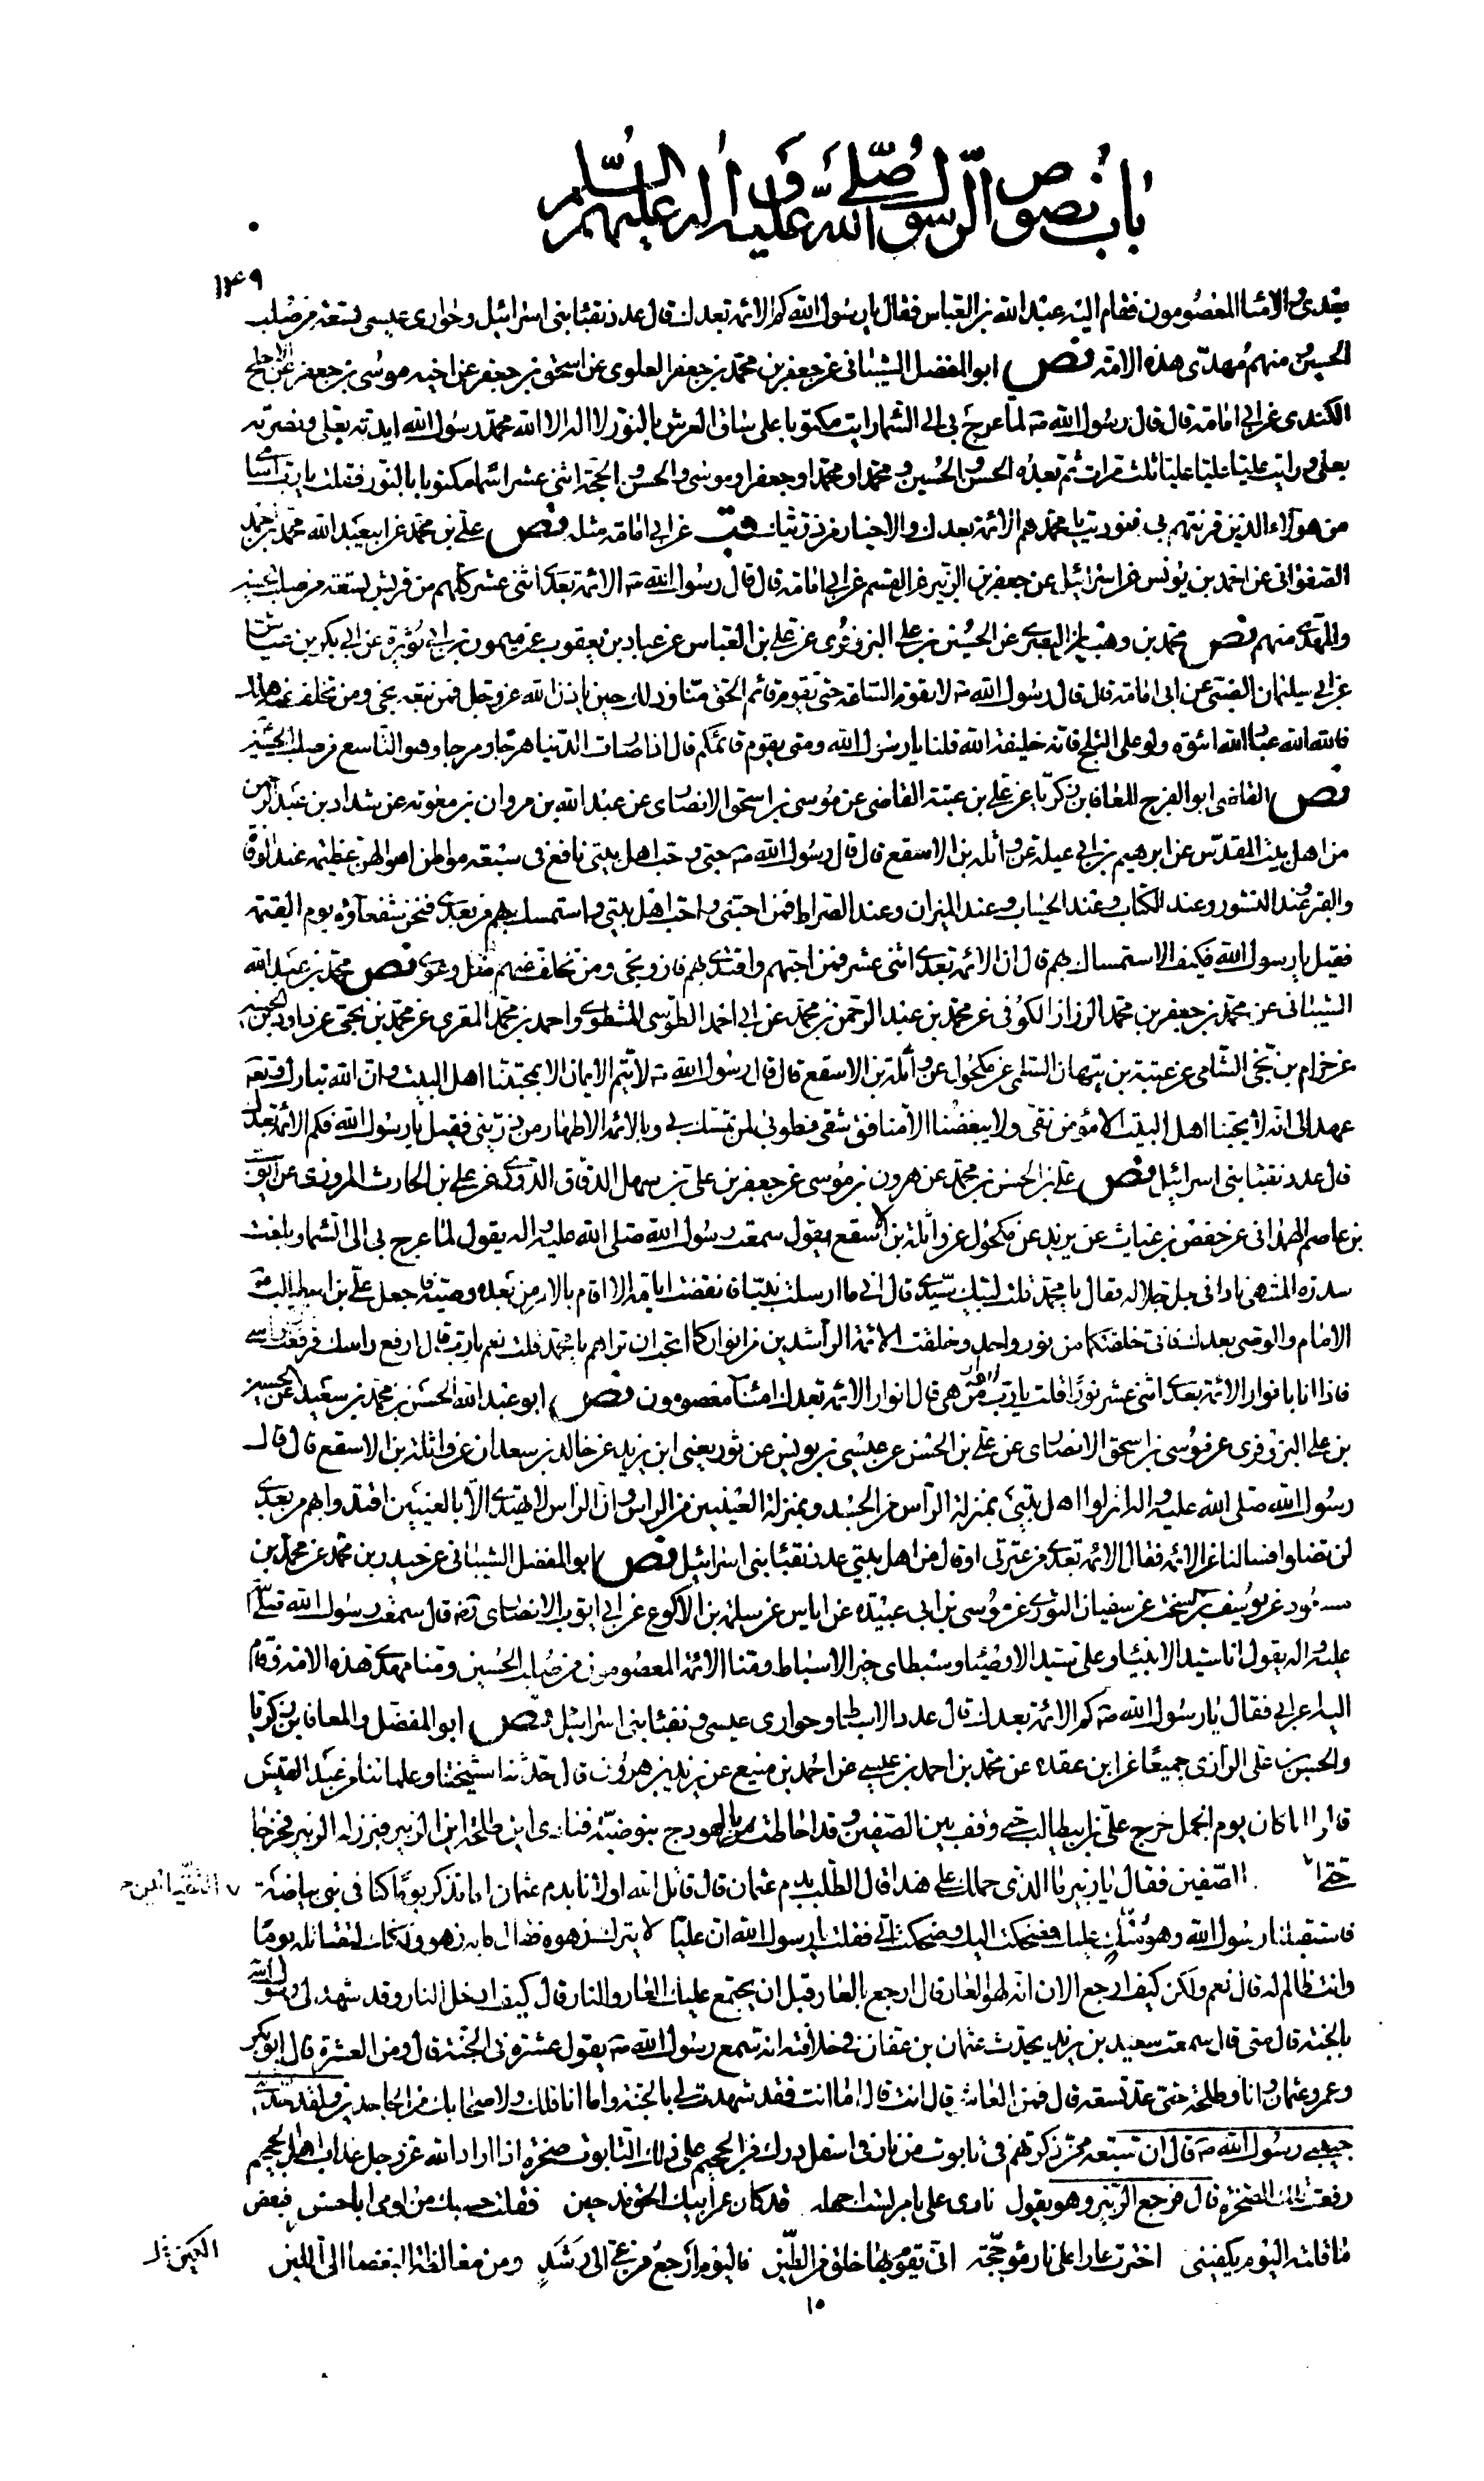 باب نصوص الرسول صلى الله عليه وآله عليهم السلام
١٤٩
بعدى والامناء المعصومون فقام اليه عبد الله بن العباس فقال يا رسول الله كم الائمة بعدك قال عدد نقباء بنى اسرائيل وحوارى عيسى تسعة من صلب
الحسين ومنهم مهدى هذه الامة نص ابو المفضل الشيبانى عن جعفر بن محمد بن جعفر العلوى عن اسحق بن جعفر عن اخيه موسى بن جعفر عن الاجلح
الكندى عن ابى امامة قال قال رسول الله ص لما عرج بى الى السماء رايت مكتوبا على ساق العرش بالنور لا اله الا الله محمد رسول الله ايدته بعلى ونصرته
بعلى ورايت عليا عليا عليا ثلث مرات ثم بعده الحسن والحسين ومحمدا ومحمدا وجعفرا وموسى والحسن والحجة اثنى عشر اسما مكتوبا بالنور فقلت يا رب اسامى
من هؤلاء الذين قرنتهم بى فنوديت يا محمد هم الائمة بعدك والاخيار من ذريتك قب عن ابى امامة مثله نص على بن محمد عن ابى عبيد الله محمد بن احمد
الصفوانى عن احمد بن يونس عن اسرائيل عن جعفر بن الزبير عن القسم عن ابى امامة قال قال رسول الله ص الائمة بعدى اثنى عشر كلهم من قريش تسعة من صلب الحسين
والمهدى منهم نص محمد بن وهبان البصرى عن الحسين بن على البزوفرى عن على بن العباس عن عباد بن يعقوب عن ميمون بن ابى نويرة عن ابى بكر بن عياش
عن ابى سليمان الضبى عن ابى امامة قال قال رسول الله ص لا تقوم الساعة حتى يقوم قائم الحق منا وذلك حين ياذن الله عز وجل فمن تبعه نجى ومن تخلف عنه هلك
فالله الله عباد الله ائتوه ولو على الثلج فانه خليفة الله قلنا يا رسول الله ومتى يقوم قائمكم قال اذا صارت الدنيا هرجا ومرجا وهو التاسع من صلب الحسين
نص القاضى ابو الفرج المعافا بن زكريا عن على بن عتبة القاضى عن موسى بن اسحق الانصارى عن عبد الله بن مروان بن معوية عن شداد بن عبد الرحمن
من اهل بيت المقدس عن ابرهيم بن ابى عيلة عن واثلة بن الاسقع قال قال رسول الله ص حبى وحب اهل بيتى نافع فى سبعة مواطن اهوالهن عظيمة عند الوفاة
والقبر وعند النشور وعند الكتاب وعند الحساب وعند الميزان وعند الصراط فمن احبنى واحب اهل بيتى واستمسك بهم من بعدى فنحن شفعاؤه يوم القيمة
فقيل يا رسول الله فكيف الاستمساك بهم قال ان الائمة بعدى اثنى عشر فمن احبهم واقتدى بهم فاز ونجى ومن تخلف عنهم ضل وغوى نص محمد بن عبد الله
الشيبانى عن محمد بن جعفر بن محمد الرزاز الكوفى عن محمد بن عبد الرحمن بن محمد عن ابى احمد الطوسى المشطوى واحمد بن محمد المقرى عن محمد بن يحيى عن داود بن الحسين
عن حزام بن يحيى الشامى عن عتبة بن تيهان السلمى عن مكحول عن واثلة بن الاسقع قال قال رسول الله ص لا يتم الايمان الا بمحبتنا اهل البيت وان الله تبارك وتعالى
عهد الى انه لا يحبنا اهل البيت الا مؤمن تقى ولا يبغضنا الا منافق شقى فطوبى لمن تمسك بى وبالائمة الاطهار من ذريتى فقيل يا رسول الله فكم الائمة بعدك
قال عدد نقباء بنى اسرائيل نص على بن الحسن بن محمد عن هرون بن موسى عن جعفر بن على بن سهل الدقاق الدورى عن على بن الحارث المروزى عن ايوب
بن عاصم الهمدانى عن حفص بن غياث عن يزيد عن مكحول عن واثلة بن الاسقع يقول سمعت رسول الله صلى الله عليه واله يقول لما عرج بى الى السماء وبلغت
سدرة المنتهى نادانى جل جلاله فقال يا محمد قلت لبيك سيدى قال انى ما ارسلت نبيا فانقضت ايامه الا اقام بالامر من بعده وصيه فاجعل على بن ابيطالب
الامام والوصى بعدك فانى خلقتكما من نور واحد وخلقت الائمة الراشدين من انواركما اتحب ان تراهم يا محمد قلت نعم يا رب قال ارفع راسك فرفعت راسى
فاذا انا بانوار الائمة بعدى اثنى عشر نورا قلت يا رب انوار من هى قال انوار الائمة بعدك امناء معصومون نص ابو عبد الله الحسين بن محمد بن سعيد عن الحسين
بن على البزوفرى عن موسى بن اسحق الانصارى عن على بن الحسن عن عيسى بن يونس عن ثور يعنى ابن يزيد عن خالد بن سعدان عن واثلة بن الاسقع قال قال
رسول الله صلى الله عليه واله انزلوا اهل بيتى بمنزلة الراس من الجسد وبمنزلة العينين من الراس وان الراس لا يهتدى الا بالعينين اقتدوا بهم من بعدى
لن تضلوا فسالنا عن الائمة فقال الائمة بعدى من عترتى او قال من اهل بيتى عدد نقباء بنى اسرائيل نص ابو المفضل الشيبانى عن حيدر بن محمد عن محمد بن
مسعود عن يوسف بن السخت عن سفيان الثورى عن موسى بن ابى عبيدة عن اياس عن سلمة بن الاكوع عن ابى ايوب الانصارى رضه قال سمعت رسول الله صلى الله
عليه واله يقول انا سيد الانبياء وعلى سيد الاوصياء وسبطاى خير الاسباط ومنا الائمة المعصومون من صلب الحسين ومنا مهدى هذه الامة فقام
اليه اعرابى فقال يا رسول الله ص كم الائمة بعدك قال عدد الاسباط وحوارى عيسى ونقباء بنى اسرائيل نص ابو المفضل والمعافا بن زكريا
والحسن بن على الرازى جميعا عن ابن عقدة عن محمد بن احمد بن عيسى عن احمد بن منيع عن يزيد بن هرون قال حدثنا مشيختنا وعلماؤنا من عبد القيس
قالوا لما كان يوم الجمل خرج على بن ابيطالب حتى وقف بين الصفين وقد احاطت بالهودج بنو ضبة فنادى اين طلحة اين الزبير فبرز له الزبير فخرجا
حتى التقيا بين الصفين فقال يا زبير ما الذى حملك على هذا قال الطلب بدم عثمان قال قاتل الله اولانا بدم عثمان اما تذكر يوما كنا فى بنى بياضة
فاستقبلنا رسول الله وهو متكئ عليك فضحكت اليك وضحكت الى فقلت يا رسول الله ان عليا لا يترك زهوه فقال ما به زهو ولكنك لتقاتله يوما
وانت ظالم له قال نعم ولكن كيف ارجع الان انه لهو العار قال ارجع بالعار قبل ان يجتمع عليك العار والنار قال كيف ادخل النار وقد شهد لى رسول الله
بالجنة قال متى قال سمعت سعيد بن زيد يحدث عثمان بن عفان فى خلافته انه سمع رسول الله ص يقول عشرة فى الجنة قال ومن العشرة قال ابو بكر
وعمر وعثمان وانا وطلحة حتى عد تسعة قال فمن العاشر قال انت قال اما انت فقد شهدت لى بالجنة واما انا فلك ولاصحابك من الجاحدين ولقد حدثنى
حبيبى رسول الله ص قال ان سبعة ممن ذكرتهم فى تابوت من نار فى اسفل درك من الجحيم على ذلك التابوت صخرة اذا اراد الله عز وجل عذاب اهل الجحيم
رفعت تلك الصخرة قال فرجع الزبير وهو يقول نادى على بامر لست اجهله قد كان عمر ابيك الحق مذ حين فقلت حسبك من لومى ابا حسن فبعض
ما قلته اليوم يكفينى اخترت عارا على نار مؤججة انى يقوم لها خلق من الطين فاليوم ارجع من غى الى رشد ومن مغالظة البغضا الى اللين
١٥